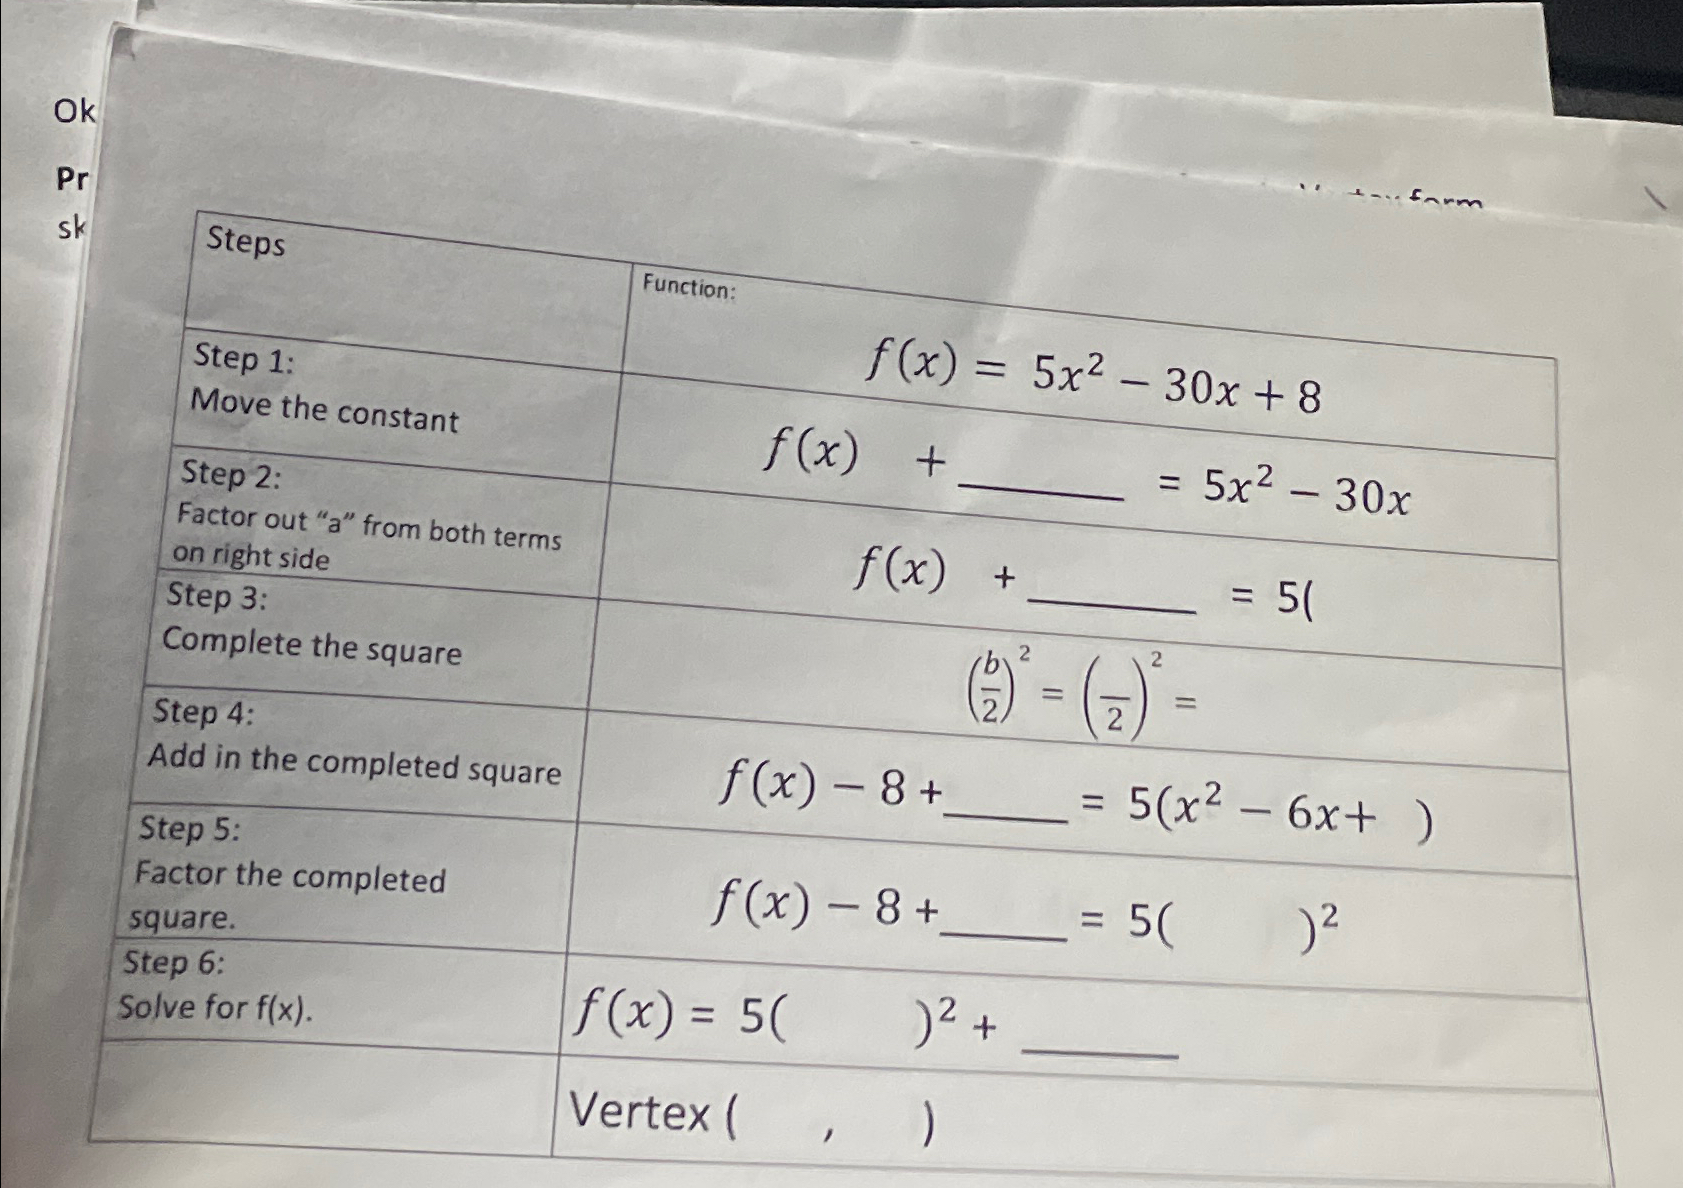 Ok
Pr
sk
form
Steps
Function:
f(x) = 5x² − 30x + 8
Step 1:
Move the constant
f(x) + ______ = 5x² − 30x
Step 2:
Factor out “a” from both terms
on right side
f(x) + ______ = 5(
Step 3:
Complete the square
(b/2)² = (—/2)² =
Step 4:
Add in the completed square
f(x) − 8 + ______ = 5(x² − 6x+ )
Step 5:
Factor the completed
square.
f(x) − 8 + ______ = 5( )²
Step 6:
Solve for f(x).
f(x) = 5( )² + ______
Vertex ( , )